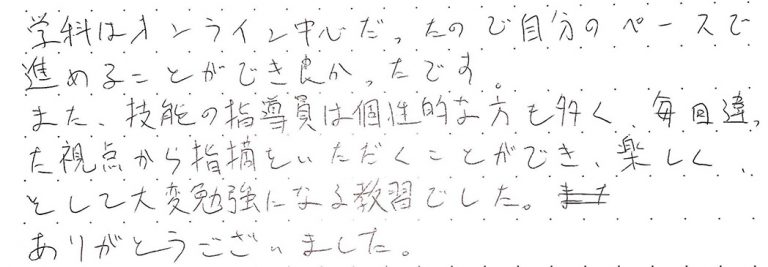 学科はオンライン中心だったので自分のペースで
進めることができ良かったです。
また、技能の指導員は個性的な方も多く、毎回違っ
た視点から指摘をいただくことができ、楽しく、
そして大変勉強になる教習でした。
ありがとうございました。